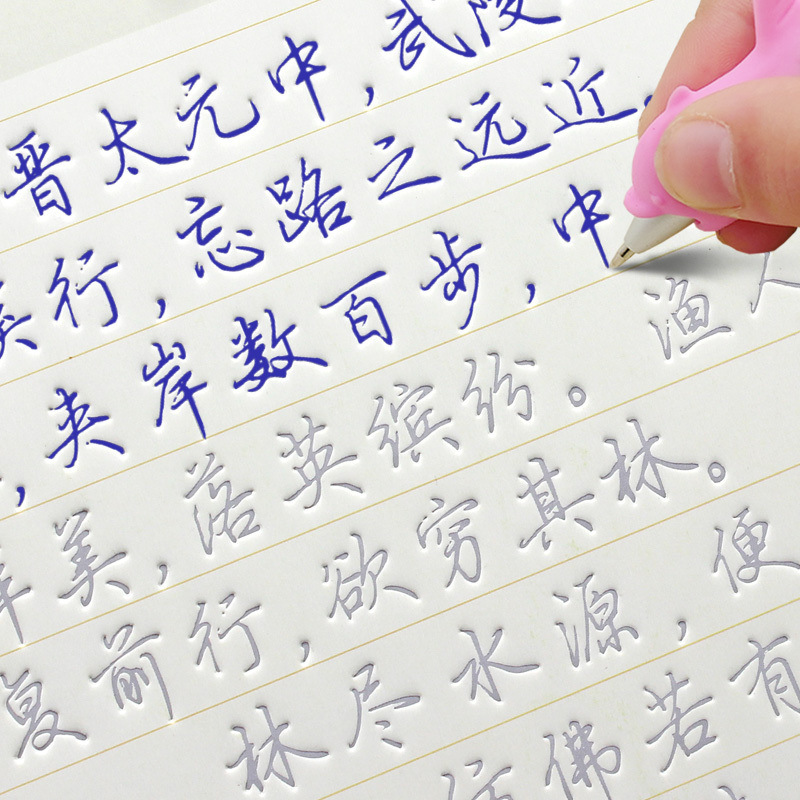 晋太元中,武陵
行,忘路之远近,
,夹岸数百步,中
美,落英缤纷。渔人
复前行,欲穷其林。
林尽水源,便
仿佛若有